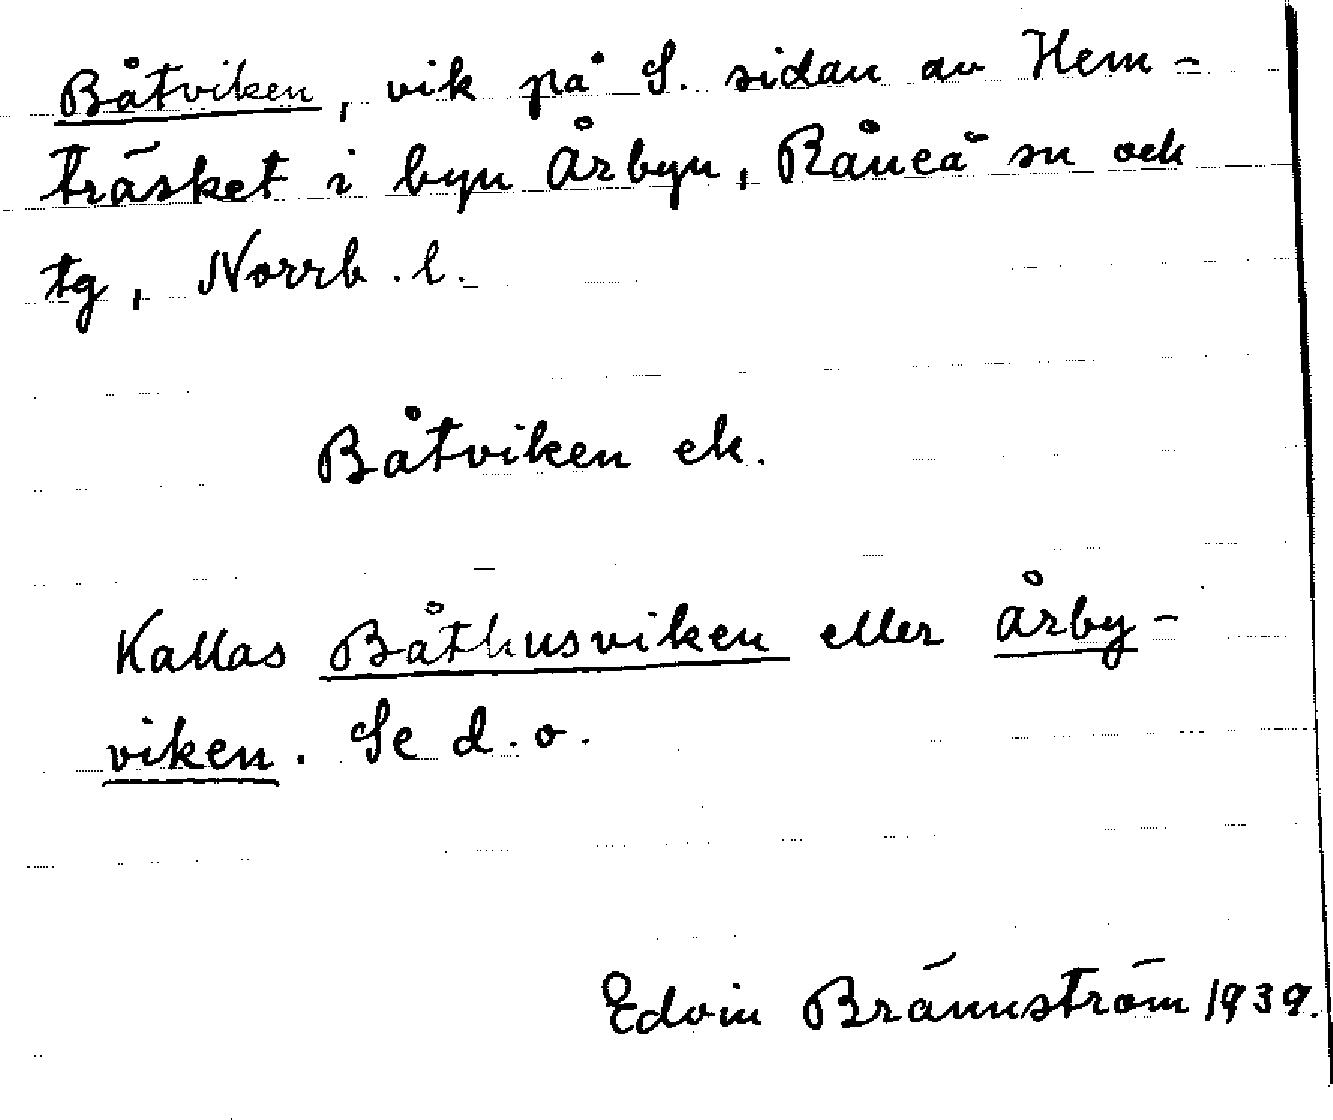 Båtviken, vik på S. sidan av Hem-
träsket i byn Årbyn, Råneå sn och
tg, Norrb. l.
Båtviken ek.
Kallas Båthusviken eller Årby-
viken. Se d. o.
Edvin Brännström 1939.